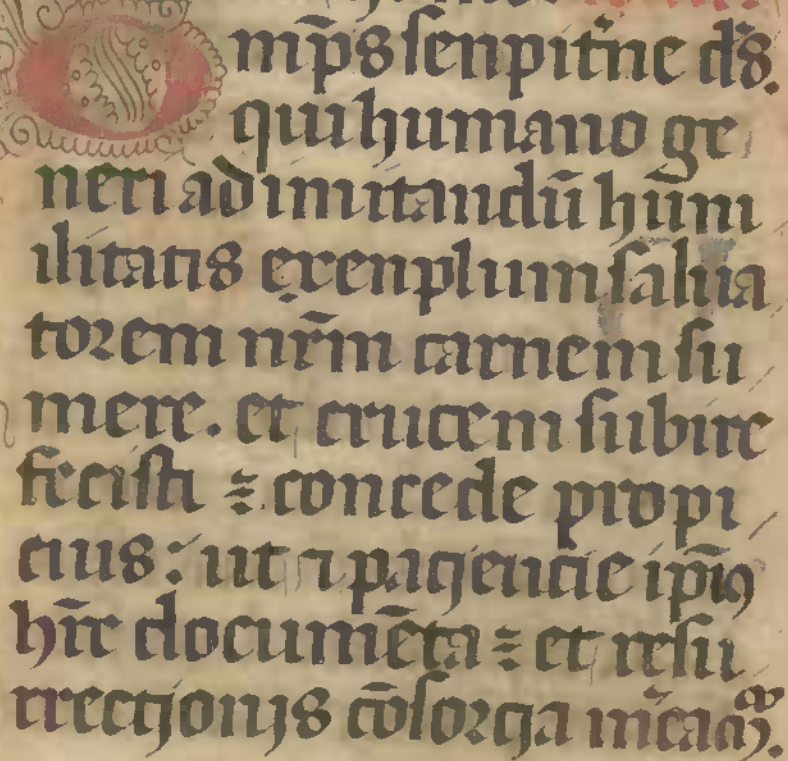 Omp̄s senpit̄ne ds̄.
qui humano ge
neri ad imitandū hūm
ilitatis exenplum salua
torem nr̄m carnem su
mere. et crucem subire
fecisti concede propi
cius: ut ⁊ paçiencie ip̄iꝯ
hr̄e documēta et resu
rrecçionis cōsorcia